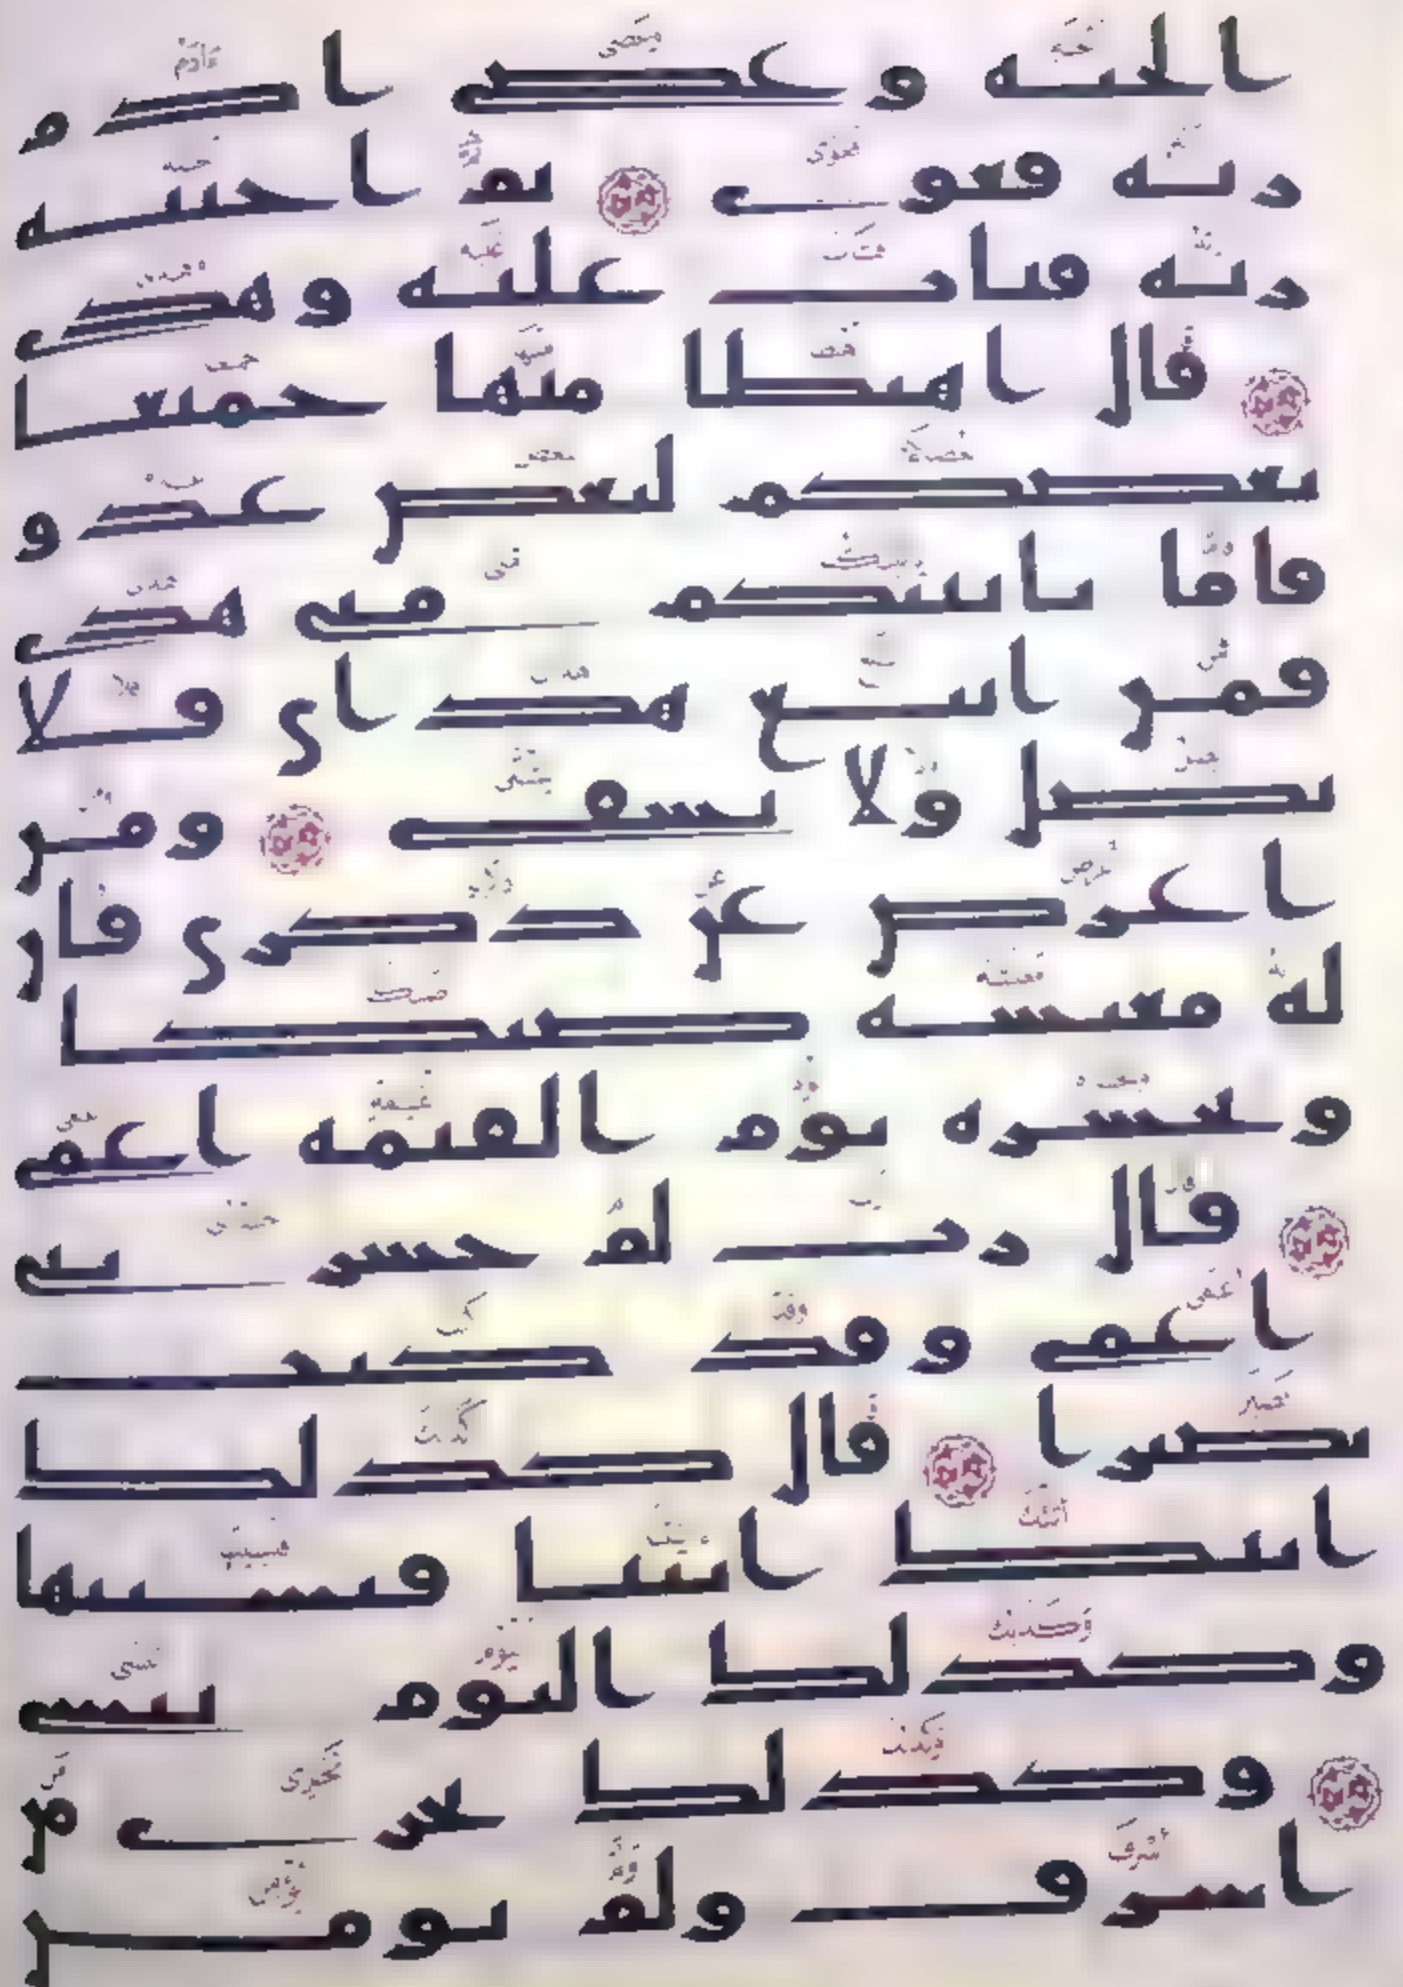 الجنة وعصى ادم
ربه فغوى ثم اجتبه
ربه فتاب عليه وهدى
قال اهبطا منها جميعا
بعضكم لبعض عدو
فاما ياتينكم مني هدى
فمن اتبع هداي فلا
يضل ولا يشقى ومن
اعرض عن ذكري فان
له معيشة ضنكا
ونحشره يوم القيمة اعمى
قال رب لم حشرتني
اعمى وقد كنت
بصيرا قال كذلك
اتتك ايتنا فنسيتها
وكذلك اليوم تنسى
وكذلك نجزي من
اسرف ولم يومن